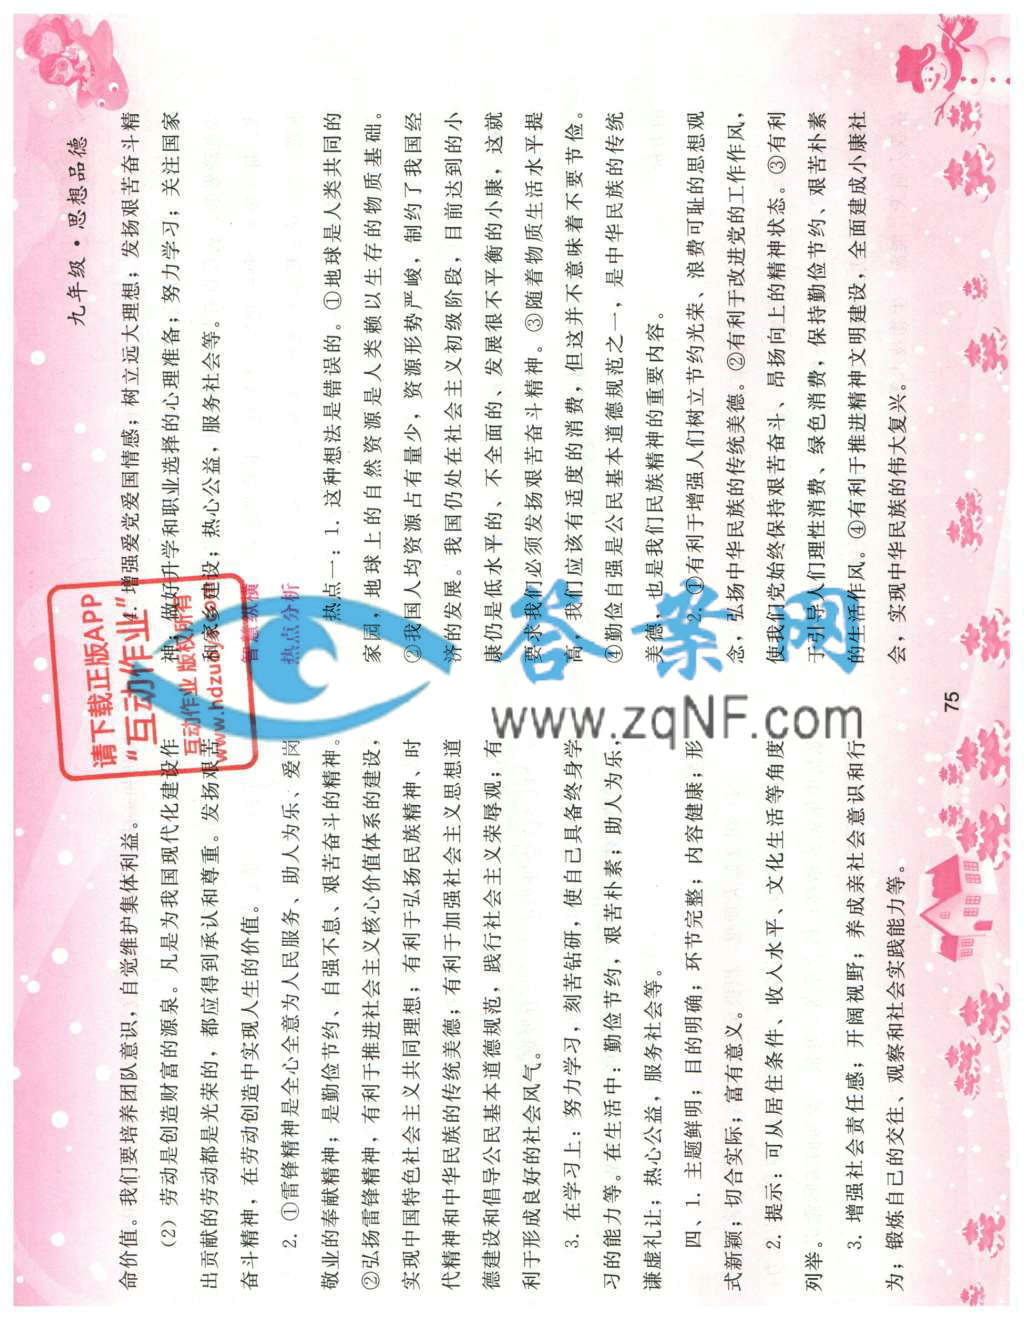 九年级·思想品德
命价值。我们要培养团队意识，自觉维护集体利益。
（2）劳动是创造财富的源泉。凡是为我国现代化建设作
出贡献的劳动都是光荣的，都应得到承认和尊重。发扬艰苦
奋斗精神，在劳动创造中实现人生的价值。
2. ①雷锋精神是全心全意为人民服务、助人为乐、爱岗
敬业的奉献精神；是勤俭节约、自强不息、艰苦奋斗的精神。
②弘扬雷锋精神，有利于推进社会主义核心价值体系的建设，
实现中国特色社会主义共同理想；有利于弘扬民族精神、时
代精神和中华民族的传统美德；有利于加强社会主义思想道
德建设和倡导公民基本道德规范，践行社会主义荣辱观；有
利于形成良好的社会风气。
3. 在学习上：努力学习，刻苦钻研，使自己具备终身学
习的能力等。在生活中：勤俭节约，艰苦朴素；助人为乐，
谦虚礼让；热心公益，服务社会等。
四、1. 主题鲜明；目的明确；环节完整；内容健康；形
式新颖；切合实际；富有意义。
2. 提示：可从居住条件、收入水平、文化生活等角度
列举。
3. 增强社会责任感；开阔视野；养成亲社会意识和行
为；锻炼自己的交往、观察和社会实践能力等。
4. 增强爱党爱国情感；树立远大理想；发扬艰苦奋斗精
神；做好升学和职业选择的心理准备；努力学习；关注国家
和家乡建设；热心公益，服务社会等。
智慧纵横
热点分析
热点一：1. 这种想法是错误的。①地球是人类共同的
家园，地球上的自然资源是人类赖以生存的物质基础。
②我国人均资源占有量少，资源形势严峻，制约了我国经
济的发展。我国仍处在社会主义初级阶段，目前达到的小
康仍是低水平的、不全面的、发展很不平衡的小康，这就
要求我们必须发扬艰苦奋斗精神。③随着物质生活水平提
高，我们应该有适度的消费，但这并不意味着不要节俭。
④勤俭自强是公民基本道德规范之一，是中华民族的传统
美德，也是我们民族精神的重要内容。
2. ①有利于增强人们树立节约光荣、浪费可耻的思想观
念，弘扬中华民族的传统美德。②有利于改进党的工作作风，
使我们党始终保持艰苦奋斗、昂扬向上的精神状态。③有利
于引导人们理性消费、绿色消费，保持勤俭节约、艰苦朴素
的生活作风。④有利于推进精神文明建设，全面建成小康社
会，实现中华民族的伟大复兴。
75
请下载正版APP
“互动作业”
互动作业 版权所有
www.hdzuoye.com
答案网
www.zqNF.com